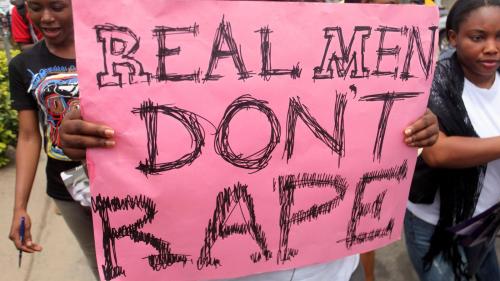 REAL MEN
DON'T
RAPE